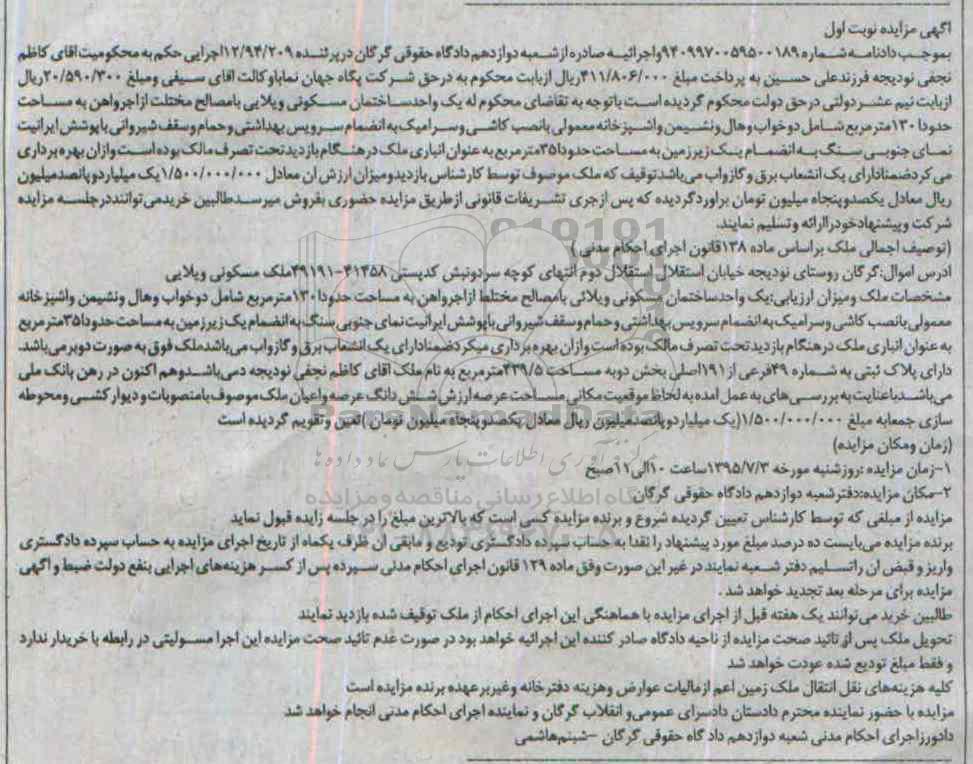 آگهی مزایده نوبت اول
بموجب دادنامه شماره ۹۴۰۹۹۷۰۰۵۹۵۰۰۱۸۹واجرائیه صادره از شعبه دوازدهم دادگاه حقوقی گرگان در پرتنده ۱۲/۹۴/۲۰۹اجرایی حکم به محکومیت اقای کاظم
نجفی نودیجه فرزندعلی حسین به پرداخت مبلغ ۴۱۱/۸۰۶/۰۰۰ریال ازبابت محکوم به درحق شرکت پگاه جهان نماباوکالت اقای سیفی ومبلغ ۲۰/۵۹۰/۳۰۰ریال
ازبابت نیم عشر دولتی درحق دولت محکوم گردیده است باتوجه به تقاضای محکوم له یک واحدساختمان مسکونی ویلایی بامصالح مختلت ازاجرواهن به مساحت
حدودا ۱۳۰مترمربع شامل دوخواب وهال ونشیمن واشپزخانه معمولی بانصب کاشی وسرامیک به انضمام سرویس بهداشتی وحمام وسقف شیروانی باپوشش ایرانیت
نمای جنوبی سنگ به انضمام یک زیرزمین به مساحت حدودا۳۵مترمربع به عنوان انباری ملک درهنگام بازدیدتحت تصرف مالک بوده است وازان بهره برداری
می کردضمنادارای یک انشعاب برق وگازواب می‌باشدتوقیف که ملک موصوف توسط کارشناس بازدیدومیزان ارزش ان معادل ۱/۵۰۰/۰۰۰/۰۰۰یک میلیاردوپانصدمیلیون
ریال معادل یکصدوپنجاه میلیون تومان براوردگردیده که پس ازجری تشریفات قانونی ازطریق مزایده حضوری بفروش میرسدطالبین خریدمی‌تواننددرجلسه مزایده
شرکت وپیشنهادخودراارائه وتسلیم نمایند.
(توصیف اجمالی ملک براساس ماده ۱۳۸قانون اجرای احکام مدنی)
ادرس اموال:گرگان روستای نودیجه خیابان استقلال استقلال دوم انتهای کوچه سردونبش کدپستی ۴۱۳۵۸-۴۹۱۹۱ملک مسکونی ویلایی
مشخصات ملک ومیزان ارزیابی:یک واحدساختمان مسکونی ویلائی بامصالح مختلط ازاجرواهن به مساحت حدودا۱۳۰مترمربع شامل دوخواب وهال ونشیمن واشپزخانه
معمولی بانصب کاشی وسرامیک به انضمام سرویس بهداشتی وحمام وسقف شیروانی باپوشش ایرانیت نمای جنوبی سنگ به انضمام یک زیرزمین به مساحت حدودا۳۵مترمربع
به عنوان انباری ملک درهنگام بازدیدتحت تصرف مالک بوده است وازان بهره برداری میکردضمنادارای یک انشعاب برق وگازواب می‌باشدملک فوق به صورت دوبرمی‌باشد.
دارای پلاک ثبتی به شماره ۴۹فرعی از ۱۹۱اصلی بخش دوبه مساحت ۲۳۹/۵مترمربع به نام ملک اقای کاظم نجفی نودیجه دمی‌باشدوهم اکنون در رهن بانک ملی
می‌باشدباعنایت به بررسی‌های به عمل امده به لحاظ موقعیت مکانی مساحت عرصه ارزش شش دانگ عرصه واعیان ملک موصوف بامنصوبات و دیوارکشی ومحوطه
سازی جمعابه مبلغ ۱/۵۰۰/۰۰۰/۰۰۰(یک میلیاردوپانصدمیلیون ریال معادل یکصدوپنجاه میلیون تومان)تعین وتقویم گردیده است
(زمان ومکان مزایده)
۱-زمان مزایده :روزشنبه مورخه ۱۳۹۵/۷/۳ساعت ۱۰الی۱۱صبح
۲-مکان مزایده:دفترشعبه دوازدهم دادگاه حقوقی گرگان
مزایده از مبلغی که توسط کارشناس تعیین گردیده شروع و برنده مزایده کسی است که بالاترین مبلغ را در جلسه زایده قبول نماید
برنده مزایده می‌بایست ده درصد مبلغ مورد پیشنهاد را نقدا به حساب سپرده دادگستری تودیع و مابقی ان ظرف یکماه از تاریخ اجرای مزایده به حساب سپرده دادگستری
واریز و قبض ان راتسلیم دفتر شعبه نمایند در غیر این صورت وفق ماده ۱۲۹ قانون اجرای احکام مدنی سپرده پس از کسر هزینه‌های اجرایی بنفع دولت ضبط و اگهی
مزایده برای مرحله بعد تجدید خواهد شد .
طالبین خرید می‌توانند یک هفته قبل از اجرای مزایده با هماهنگی این اجرای احکام از ملک توقیف شده بازدید نمایند
تحویل ملک پس از تائید صحت مزایده از ناحیه دادگاه صادر کننده این اجرائیه خواهد بود در صورت عدم تائید صحت مزایده این اجرا مسولیتی در رابطه با خریدار ندارد
و فقط مبلغ تودیع شده عودت خواهد شد
کلیه هزینه‌های نقل انتقال ملک زمین اعم ازمالیات عوارض وهزینه دفترخانه وغیربرعهده برنده مزایده است
مزایده با حضور نماینده محترم دادستان دادسرای عمومی و انقلاب گرگان و نماینده اجرای احکام مدنی انجام خواهد شد
دادورزاجرای احکام مدنی شعبه دوازدهم داد گاه حقوقی گرگان -شبنم‌هاشمی
ParsNamadData
مرکز فرآوری اطلاعات پارس نماد داده ها
پایگاه اطلاع رسانی مناقصه و مزایده